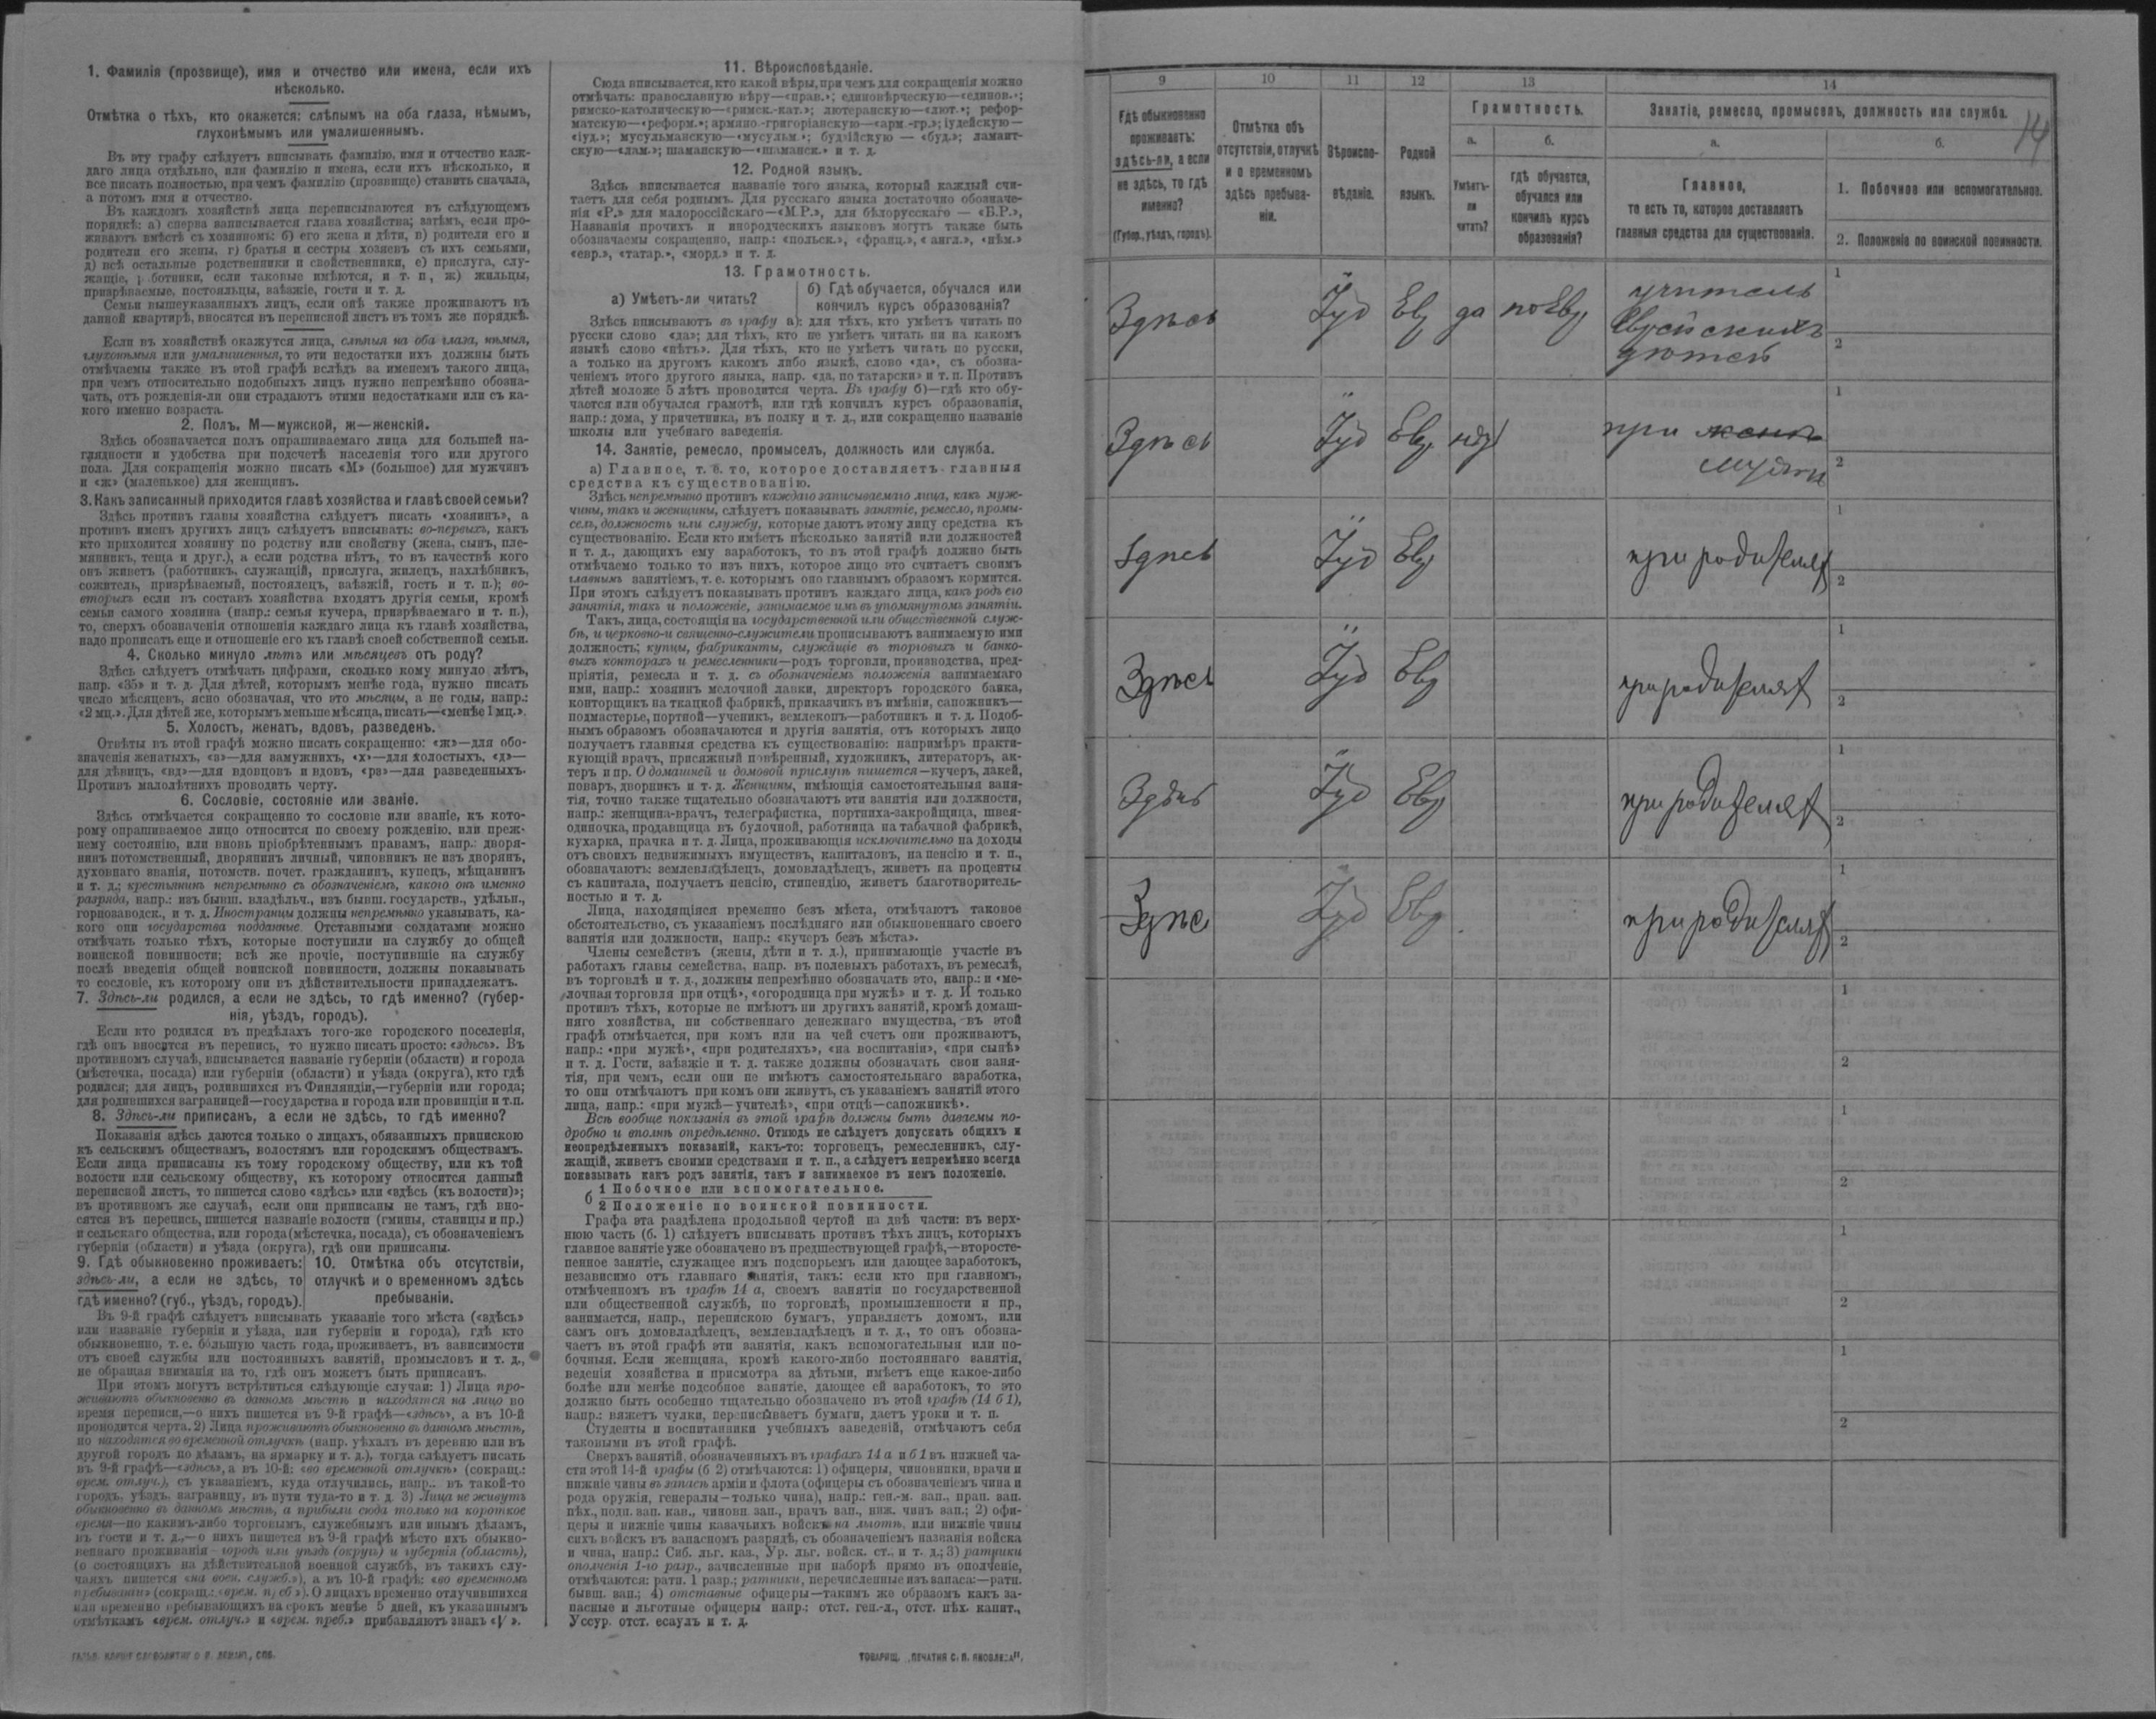 1. Фамилія (прозвище), имя и отчество или имена, если ихъ
нѣсколько.
Отмѣтка о тѣхъ, кто окажется: слѣпымъ на оба глаза, нѣмымъ,
глухонѣмымъ или умалишеннымъ.
Въ эту графу слѣдуетъ вписывать фамилію, имя и отчество каж-
даго лица отдѣльно, или фамилію и имена, если ихъ нѣсколько, и
все писать полностью, при чемъ фамилію (прозвище) ставить сначала,
а потомъ имя и отчество.
Въ каждомъ хозяйствѣ лица переписываются въ слѣдующемъ
порядкѣ: а) сперва записывается глава хозяйства; затѣмъ, если про-
живаютъ вмѣстѣ съ хозяиномъ: б) его жена и дѣти, в) родители его и
родители его жены, г) братья и сестры хозяевъ съ ихъ семьями,
д) всѣ остальные родственники и свойственники, е) прислуга, слу-
жащіе, р ботники, если таковые имѣются, и т. п, ж) жильцы,
призрѣваемые, постояльцы, заѣзжіе, гости и т. д.
Семьи вышеуказанныхъ лицъ, если онѣ также проживаютъ въ
данной квартирѣ, вносятся въ переписной листъ въ томъ же порядкѣ.
Если въ хозяйствѣ окажутся лица, слѣпыя на оба глаза, нѣмыя,
глухонѣмыя или умалишенныя, то эти недостатки ихъ должны быть
отмѣчаемы также въ этой графѣ вслѣдъ за именемъ такого лица,
при чемъ относительно подобныхъ лицъ нужно непремѣнно обозна-
чать, отъ рожденія-ли они страдаютъ этими недостатками или съ ка-
кого именно возраста.
2. Полъ. М—мужской, ж—женскій.
Здѣсь обозначается полъ опрашиваемаго лица для большей на-
глядности и удобства при подсчетѣ населенія того или другого
пола. Для сокращенія можно писать «М» (большое) для мужчинъ
и «ж» (маленькое) для женщинъ.
3. Какъ записанный приходится главѣ хозяйства и главѣ своей семьи?
Здѣсь противъ главы хозяйства слѣдуетъ писать «хозяинъ», а
противъ именъ другихъ лицъ слѣдуетъ вписывать: во-первыхъ, какъ
кто приходится хозяину по родству или свойству (жена, сынъ, пле-
мянникъ, теща и друг.), а если родства нѣтъ, то въ качествѣ кого
онъ живетъ (работникъ, служащій, прислуга, жилецъ, нахлѣбникъ,
сожитель, призрѣваемый, постоялецъ, заѣзжій, гость и т. п.); во-
вторыхъ если въ составъ хозяйства входятъ другія семьи, кромѣ
семьи самого хозяина (напр.: семья кучера, призрѣваемаго и т. п.),
то, сверхъ обозначенія отношенія каждаго лица къ главѣ хозяйства,
надо прописать еще и отношеніе его къ главѣ своей собственной семьи.
4. Сколько минуло лѣтъ или мѣсяцевъ отъ роду?
Здѣсь слѣдуетъ отмѣчать цифрами, сколько кому минуло лѣтъ,
напр. «35» и т. д. Для дѣтей, которымъ менѣе года, нужно писать
число мѣсяцевъ, ясно обозначая, что это мѣсяцы, а не годы, напр.:
«2 мц.». Для дѣтей же, которымъ меньше мѣсяца, писать—«менѣе 1 мц.».
5. Холостъ, женатъ, вдовъ, разведенъ.
Отвѣты въ этой графѣ можно писать сокращенно: «ж»—для обо-
значенія женатыхъ, «з»—для замужнихъ, «х»—для холостыхъ, «д»—
для дѣвицъ, «вд»—для вдовцовъ и вдовъ, «рз»—для разведенныхъ.
Противъ малолѣтнихъ проводить черту.
6. Сословіе, состояніе или званіе.
Здѣсь отмѣчается сокращенно то сословіе или званіе, къ кото-
рому опрашиваемое лицо относится по своему рожденію, или преж-
нему состоянію, или вновь пріобрѣтеннымъ правамъ, напр.: дворя-
нинъ потомственный, дворянинъ личный, чиновникъ не изъ дворянъ,
духовнаго званія, потомств. почет. гражданинъ, купецъ, мѣщанинъ
и т. д.; крестьянинъ непремѣнно съ обозначеніемъ, какого онъ именно
разряда, напр.: изъ бывш. владѣльч., изъ бывш. государств., удѣльн.,
горнозаводск., и т. д. Иностранцы должны непремѣнно указывать, ка-
кого они государства подданные. Отставными солдатами можно
отмѣчать только тѣхъ, которые поступили на службу до общей
воинской повинности; всѣ же прочіе, поступившіе на службу
послѣ введенія общей воинской повинности, должны показывать
то сословіе, къ которому они въ дѣйствительности принадлежатъ.
7. Здѣсь-ли родился, а если не здѣсь, то гдѣ именно? (губер-
нія, уѣздъ, городъ).
Если кто родился въ предѣлахъ того-же городского поселенія,
гдѣ онъ вносится въ перепись, то нужно писать просто: «здѣсь». Въ
противномъ случаѣ, вписывается названіе губерніи (области) и города
(мѣстечка, посада) или губерніи (области) и уѣзда (округа), кто гдѣ
родился; для лицъ, родившихся въ Финляндіи,—губерніи или города;
для родившихся заграницей—государства и города или провинціи и т.п.
8. Здѣсь-ли приписанъ, а если не здѣсь, то гдѣ именно?
Показанія здѣсь даются только о лицахъ, обязанныхъ припискою
къ сельскимъ обществамъ, волостямъ или городскимъ обществамъ.
Если лица приписаны къ тому городскому обществу, или къ той
волости или сельскому обществу, къ которому относится данный
переписной листъ, то пишется слово «здѣсь» или «здѣсь (къ волости)»;
въ противномъ же случаѣ, если они приписаны не тамъ, гдѣ вно-
сятся въ перепись, пишется названіе волости (гмины, станицы и пр.)
и сельскаго общества, или города (мѣстечка, посада), съ обозначеніемъ
губерніи (области) и уѣзда (округа), гдѣ они приписаны.
9. Гдѣ обыкновенно проживаетъ:
здѣсь-ли, а если не здѣсь, то
гдѣ именно? (губ., уѣздъ, городъ).
10. Отмѣтка объ отсутствіи,
отлучкѣ и о временномъ здѣсь
пребываніи.
Въ 9-й графѣ слѣдуетъ вписывать указаніе того мѣста («здѣсь»
или названіе губерніи и уѣзда, или губерніи и города), гдѣ кто
обыкновенно, т. е. большую часть года, проживаетъ, въ зависимости
отъ своей службы или постоянныхъ занятій, промысловъ и т. д.,
не обращая вниманія на то, гдѣ онъ можетъ быть приписанъ.
При этомъ могутъ встрѣтиться слѣдующіе случаи: 1) Лица про-
живаютъ обыкновенно въ данномъ мѣстѣ и находятся на лицо во
время переписи,—о нихъ пишется въ 9-й графѣ—«здѣсь», а въ 10-й
проводится черта. 2) Лица проживаютъ обыкновенно въ данномъ мѣстѣ,
но находятся во временной отлучкѣ (напр. уѣхалъ въ деревню или въ
другой городъ по дѣламъ, на ярмарку и т. д.), тогда слѣдуетъ писать
въ 9-й графѣ—«здѣсь», а въ 10-й: «во временной отлучкѣ» (сокращ.:
врем. отлуч.), съ указаніемъ, куда отлучились, напр.. въ такой-то
городъ, уѣздъ, заграницу, въ пути туда-то и т. д. 3) Лица не живутъ
обыкновенно въ данномъ мѣстѣ, а прибыли сюда только на короткое
время—по какимъ-либо торговымъ, служебнымъ или инымъ дѣламъ,
въ гости и т. д.,—о нихъ пишется въ 9-й графѣ мѣсто ихъ обыкно-
веннаго проживанія—городъ или уѣздъ (округъ) и губернія (область),
(о состоящихъ на дѣйствительной военной службѣ, въ такихъ слу-
чаяхъ пишется «на воен. служб.»), а въ 10-й графѣ: «во временномъ
пребываніи» (сокращ.: «врем. преб»). О лицахъ временно отлучившихся
или временно пребывающихъ на срокъ менѣе 5 дней, къ указаннымъ
отмѣткамъ «врем. отлуч.» и «врем. преб.» прибавляютъ знакъ «V».
11. Вѣроисповѣданіе.
Сюда вписывается, кто какой вѣры, при чемъ для сокращенія можно
отмѣчать: православную вѣру—«прав.»; единовѣрческую—«единов.»;
римско-католическую—«римск.-кат.»; лютеранскую—«лют.»; рефор-
матскую—«реформ.»; армяно-григоріанскую—«арм.-гр.»; іудейскую—
«іуд.»; мусульманскую—«мусульм.»; буддійскую — «буд.»; ламаит-
скую—«лам.»; шаманскую—«шаманск.» и т. д.
12. Родной языкъ.
Здѣсь вписывается названіе того языка, который каждый счи-
таетъ для себя роднымъ. Для русскаго языка достаточно обозначе-
нія «Р.» для малороссійскаго—«М.Р.», для бѣлорусскаго — «Б.Р.»,
Названія прочихъ и инородческихъ языковъ могутъ также быть
обозначаемы сокращенно, напр.: «польск.», «франц.», « англ.», «нѣм.»
«евр.», «татар.», «морд.» и т. д.
13. Грамотность.
а) Умѣетъ-ли читать?
б) Гдѣ обучается, обучался или
кончилъ курсъ образованія?
Здѣсь вписываютъ въ графу а): для тѣхъ, кто умѣетъ читать по
русски слово «да»; для тѣхъ, кто не умѣетъ читать ни на какомъ
языкѣ слово «нѣтъ». Для тѣхъ, кто не умѣетъ читать по русски,
а только на другомъ какомъ либо языкѣ, слово «да», съ обозна-
ченіемъ этого другого языка, напр. «да, по татарски» и т. п. Противъ
дѣтей моложе 5 лѣтъ проводится черта. Въ графу б)—гдѣ кто обу-
чается или обучался грамотѣ, или гдѣ кончилъ курсъ образованія,
напр.: дома, у причетника, въ полку и т. д., или сокращенно названіе
школы или учебнаго заведенія.
14. Занятіе, ремесло, промыселъ, должность или служба.
а) Главное, т. е. то, которое доставляетъ главныя
средства къ существованію.
Здѣсь непремѣнно противъ каждаго записываемаго лица, какъ муж-
чины, такъ и женщины, слѣдуетъ показывать занятіе, ремесло, промы-
селъ, должность или службу, которые даютъ этому лицу средства къ
существованію. Если кто имѣетъ нѣсколько занятій или должностей
и т. д., дающихъ ему заработокъ, то въ этой графѣ должно быть
отмѣчаемо только то изъ нихъ, которое лицо это считаетъ своимъ
главнымъ занятіемъ, т. е. которымъ оно главнымъ образомъ кормится.
При этомъ слѣдуетъ показывать противъ каждаго лица, какъ родъ его
занятія, такъ и положеніе, занимаемое имъ въ упомянутомъ занятіи.
Такъ, лица, состоящія на государственной или общественной служ-
бѣ, и церковно-и священно-служители прописываютъ занимаемую ими
должность; купцы, фабриканты, служащіе въ торговыхъ и банко-
выхъ конторахъ и ремесленники—родъ торговли, производства, пред-
пріятія, ремесла и т. д. съ обозначеніемъ положенія занимаемаго
ими, напр.: хозяинъ мелочной лавки, директоръ городского банка,
конторщикъ на ткацкой фабрикѣ, приказчикъ въ имѣніи, сапожникъ—
подмастерье, портной—ученикъ, землекопъ—работникъ и т. д. Подоб-
нымъ образомъ обозначаются и другія занятія, отъ которыхъ лицо
получаетъ главныя средства къ существованію: напримѣръ практи-
кующій врачъ, присяжный повѣренный, художникъ, литераторъ, ак-
теръ и пр. О домашней и домовой прислугѣ пишется—кучеръ, лакей,
поваръ, дворникъ и т. д. Женщины, имѣющія самостоятельныя заня-
тія, точно также тщательно обозначаютъ эти занятія или должности,
напр.: женщина-врачъ, телеграфистка, портниха-закройщица, швея-
одиночка, продавщица въ булочной, работница на табачной фабрикѣ,
кухарка, прачка и т. д. Лица, проживающія исключительно на доходы
отъ своихъ недвижимыхъ имуществъ, капиталовъ, на пенсію и т. п.,
обозначаютъ: землевладѣлецъ, домовладѣлецъ, живетъ на проценты
съ капитала, получаетъ пенсію, стипендію, живетъ благотворитель-
ностью и т. д.
Лица, находящіяся временно безъ мѣста, отмѣчаютъ таковое
обстоятельство, съ указаніемъ послѣдняго или обыкновеннаго своего
занятія или должности, напр.: «кучеръ безъ мѣста».
Члены семействъ (жены, дѣти и т. д.), принимающіе участіе въ
работахъ главы семейства, напр. въ полевыхъ работахъ, въ ремеслѣ,
въ торговлѣ и т. д., должны непремѣнно обозначать это, напр.: и «ме-
лочная торговля при отцѣ», «огородница при мужѣ» и т. д. И только
противъ тѣхъ, которые не имѣютъ ни другихъ занятій, кромѣ домаш-
няго хозяйства, ни собственнаго денежнаго имущества, въ этой
графѣ отмѣчается, при комъ или на чей счетъ они проживаютъ,
напр.: «при мужѣ», «при родителяхъ», «на воспитаніи», «при сынѣ»
и т. д. Гости, заѣзжіе и т. д. также должны обозначать свои заня-
тія, при чемъ, если они не имѣютъ самостоятельнаго заработка,
то они отмѣчаютъ при комъ они живутъ, съ указаніемъ занятій этого
лица, напр.: «при мужѣ—учителѣ», «при отцѣ—сапожникѣ».
Всѣ вообще показанія въ этой графѣ должны быть даваемы по-
дробно и вполнѣ опредѣленно. Отнюдь не слѣдуетъ допускать общихъ и
неопредѣленныхъ показаній, какъ-то: торговецъ, ремесленникъ, слу-
жащій, живетъ своими средствами и т. п., а слѣдуетъ непремѣнно всегда
показывать какъ родъ занятія, такъ и занимаемое въ немъ положеніе.
б 1 Побочное или вспомогательное.
2 Положеніе по воинской повинности.
Графа эта раздѣлена продольной чертой на двѣ части: въ верх-
нюю часть (б. 1) слѣдуетъ вписывать противъ тѣхъ лицъ, которыхъ
главное занятіе уже обозначено въ предшествующей графѣ,—второсте-
пенное занятіе, служащее имъ подспорьемъ или дающее заработокъ,
независимо отъ главнаго занятія, такъ: если кто при главномъ,
отмѣченномъ въ графѣ 14 а, своемъ занятіи по государственной
или общественной службѣ, по торговлѣ, промышленности и пр.,
занимается, напр., перепискою бумагъ, управляетъ домомъ, или
самъ онъ домовладѣлецъ, землевладѣлецъ и т. д., то онъ обозна-
чаетъ въ этой графѣ эти занятія, какъ вспомогательныя или по-
бочныя. Если женщина, кромѣ какого-либо постояннаго занятія,
веденія хозяйства и присмотра за дѣтьми, имѣетъ еще какое-либо
болѣе или менѣе подсобное занятіе, дающее ей заработокъ, то это
должно быть особенно тщательно обозначено въ этой графѣ (14 б 1),
напр.: вяжетъ чулки, переписываетъ бумаги, даетъ уроки и т. п.
Студенты и воспитанники учебныхъ заведеній, отмѣчаютъ себя
таковыми въ этой графѣ.
Сверхъ занятій, обозначенныхъ въ графахъ 14 а и б 1 въ нижней ча-
сти этой 14-й графы (б 2) отмѣчаются: 1) офицеры, чиновники, врачи и
нижніе чины въ запасѣ арміи и флота (офицеры съ обозначеніемъ чина и
рода оружія, генералы—только чина), напр.: ген.-м. зап., прап. зап.
пѣх., подп. зап. кав., чиновн. зап., врачъ зап., ниж. чинъ зап.; 2) офи-
церы и нижніе чины казачьихъ войскъ на льготѣ, или нижніе чины
сихъ войскъ въ запасномъ разрядѣ, съ обозначеніемъ названія войска
и чина, напр.: Сиб. льг. каз., Ур. льг. войск. ст.. и т. д.; 3) ратники
ополченія 1-го разр., зачисленные при наборѣ прямо въ ополченіе,
отмѣчаются: ратн. 1 разр.; ратники, перечисленные изъ запаса:—ратн.
бывш. зап.; 4) отставные офицеры—такимъ же образомъ какъ за-
пасные и льготные офицеры напр.: отст. ген.-л., отст. пѣх. капит.,
Уссур. отст. есаулъ и т. д.
ТОВАРИЩ. „ПЕЧАТНЯ С. П. ЯКОВЛЕВА",
14
9 10 11 12 13 14
Гдѣ обыкновенно
проживаетъ:
здѣсь-ли, а если
не здѣсь, то гдѣ
именно?
(Губер., уѣздъ, городъ).
Отмѣтка объ
отсутствіи, отлучкѣ
и о временномъ
здѣсь пребыва-
ніи.
Вѣроиспо-
вѣданіе.
Родной
языкъ.
Грамотность.
а.
Умѣетъ-
ли
читать?
б.
гдѣ обучается,
обучался или
кончилъ курсъ
образованія?
Занятіе, ремесло, промыселъ, должность или служба.
а.
Главное,
то есть то, которое доставляетъ
главныя средства для существованія.
б.
1. Побочное или вспомогательное.
2. Положеніе по воинской повинности.
Здѣсь Іуд Евр да по Евр учитель
Еврейскихъ
дѣтей
1
2
Здѣсь Іуд Евр нѣт при женѣ
мужѣ
1
2
Здѣсь Іуд Евр при родителях
1
2
Здѣсь Іуд Евр при родителях
1
2
Здѣсь Іуд Евр при родителях
1
2
Здѣс Іуд Евр при родителях
1
2
1
2
1
2
1
2
1
2